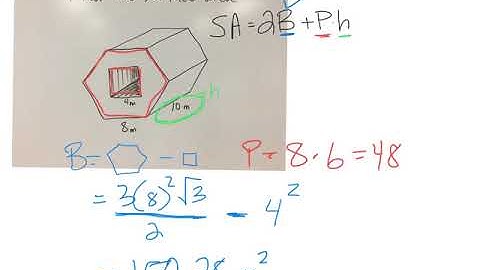 SA=2B+P·h
h
4m
10 m
8m
B= - P=8·6=48
= 3(8)²√3 / 2 - 4²